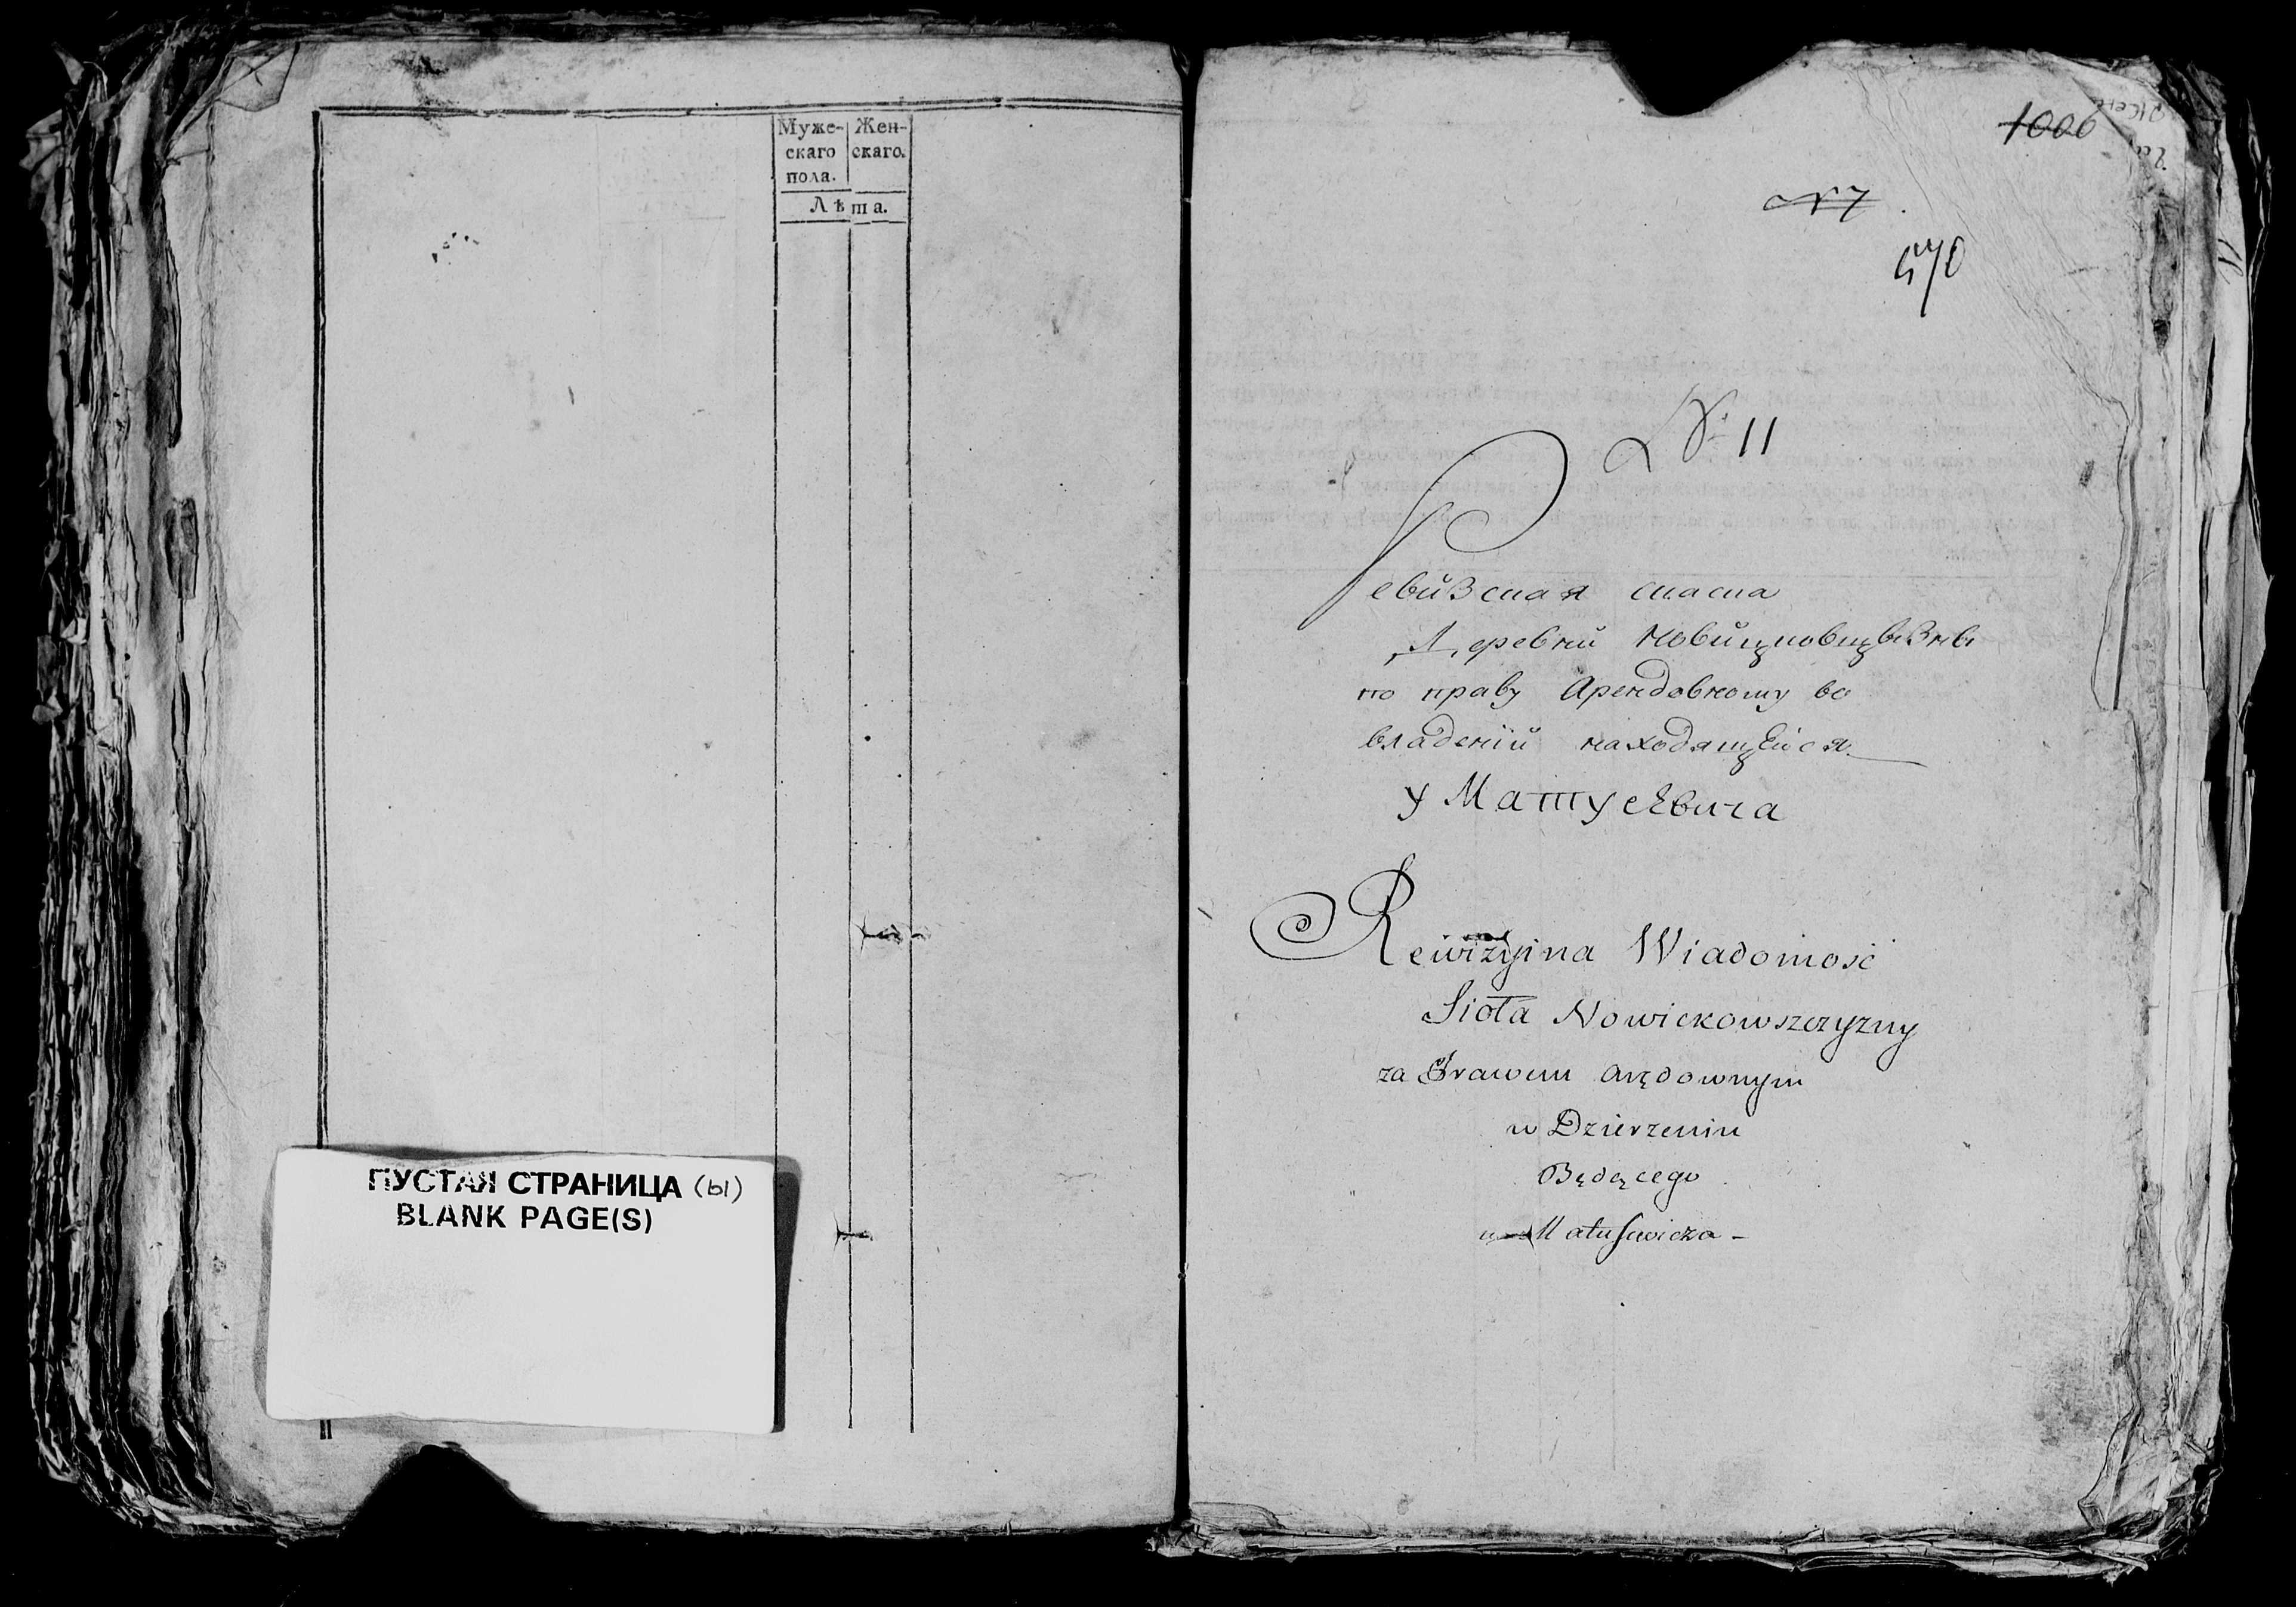 Муже- Жен-
скаго скаго.
пола.
Лѣта.
ПУСТАЯ СТРАНИЦА (ы)
BLANK PAGE(S)
1006
№7
570
№ 11
Ревизская скаска
Деревни Новицковщызны
по праву Арендовному во
владении находящейся
у Матусевича
Rewizyina Wiadomość
Sioła Nowickowszczyzny
za Prawem Arędownym
w Dzierzeniu
Będącego
u Matusewicza -